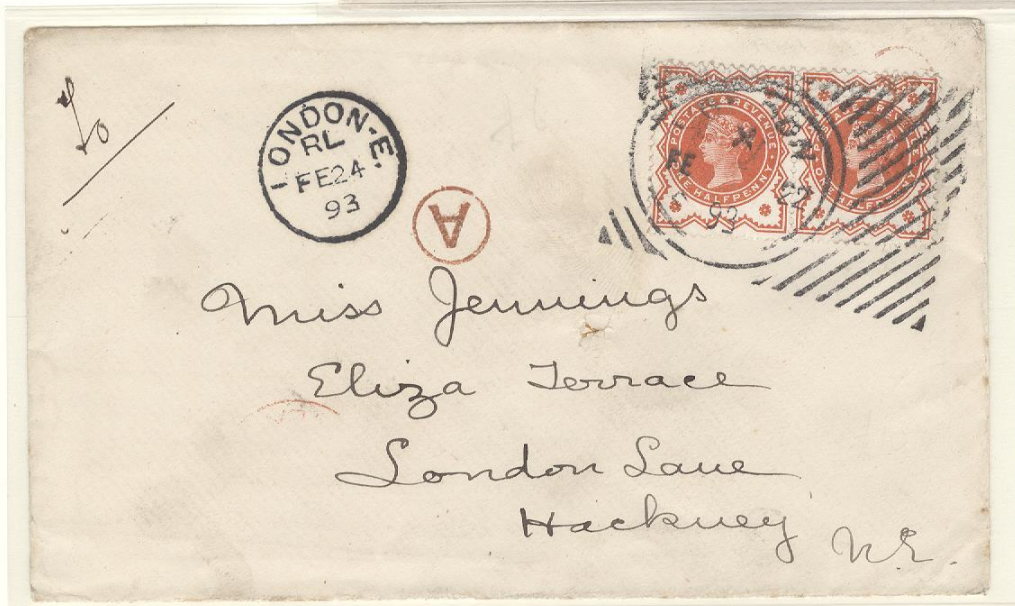 LONDON-E.
RL
FE24
93
A
POSTAGE & REVENUE
HALFPENNY
FE
93
Miss Jennings
Eliza Terrace
London Lane
Hackney
N.E.